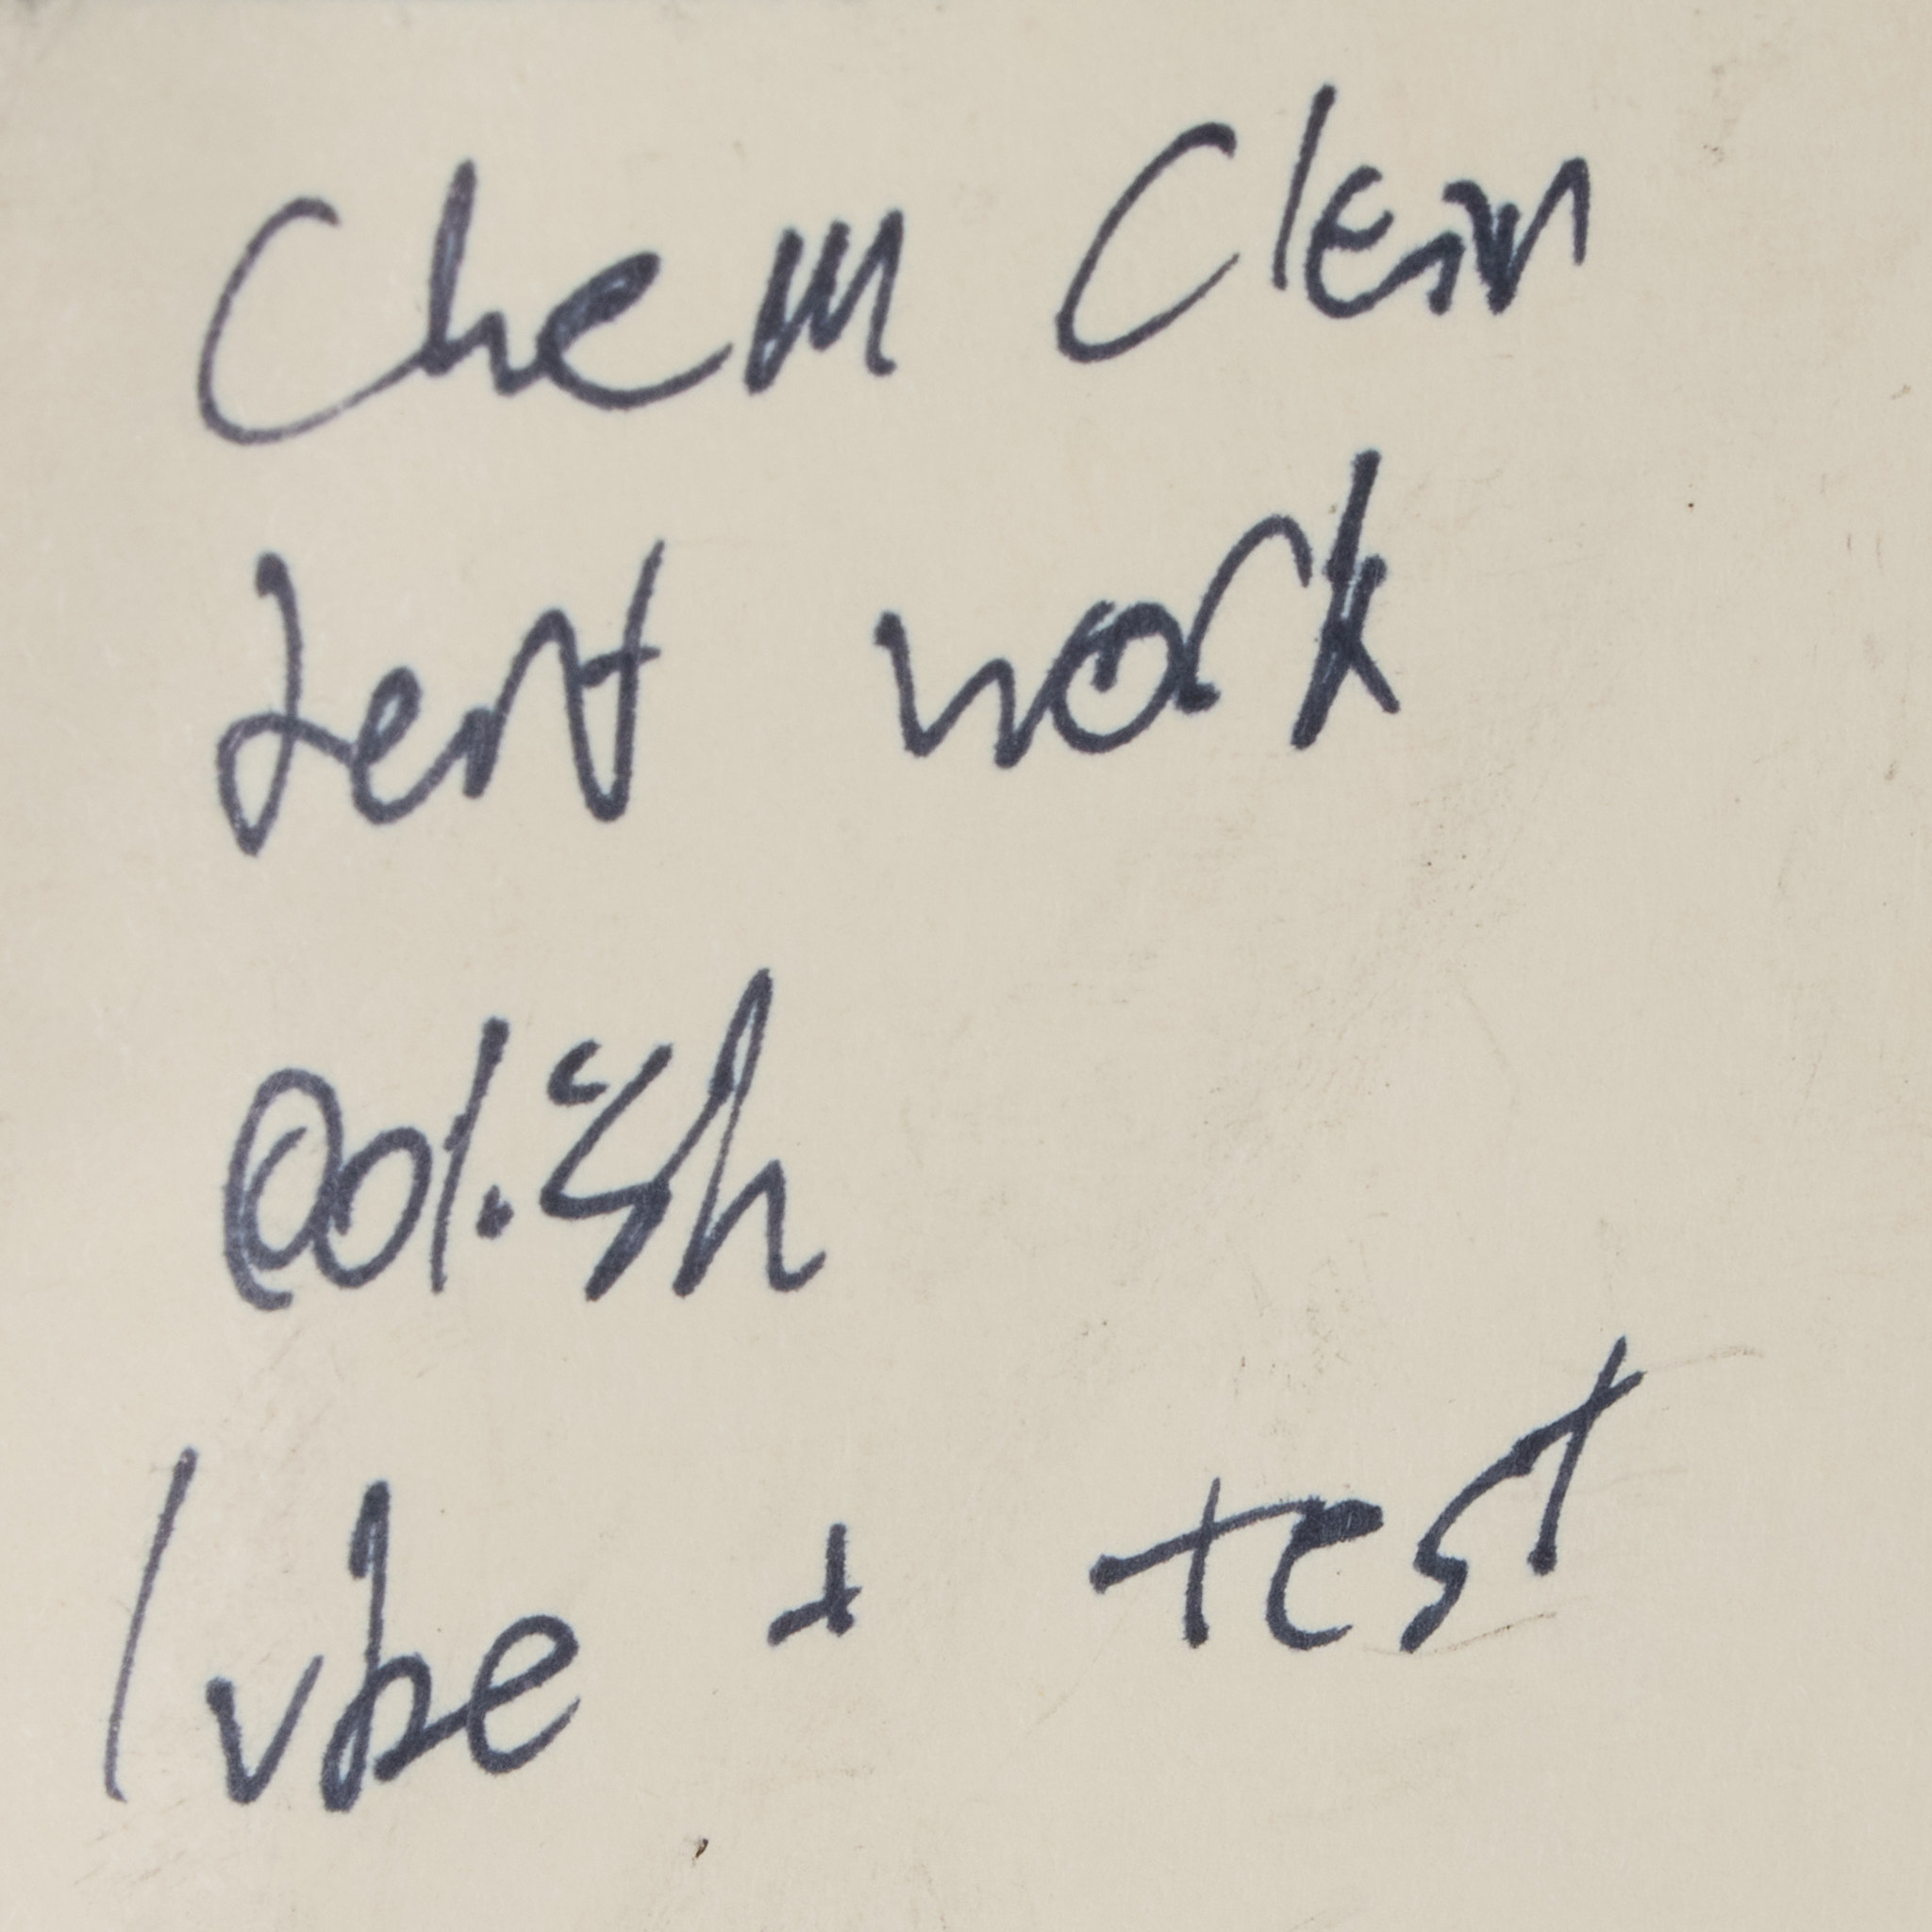 Chem Clean
dent work
Polish
lube + test